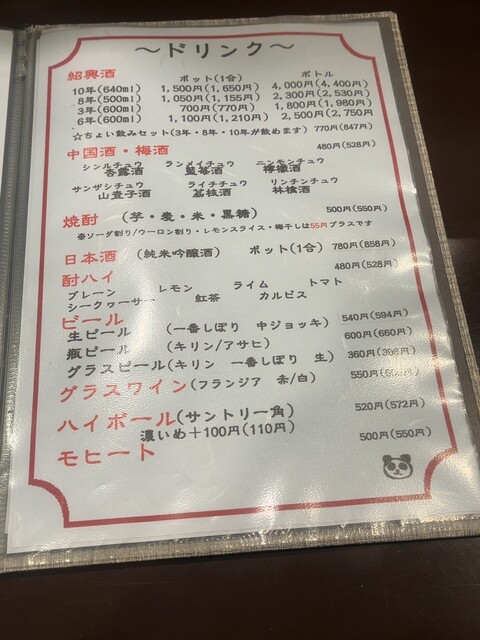 ～ドリンク～
紹興酒 ポット(1合) ボトル
10年(640ml) 1,500円(1,650円) 4,000円(4,400円)
8年(500ml) 1,050円(1,155円) 2,300円(2,530円)
3年(600ml) 700円(770円) 1,800円(1,980円)
6年(600ml) 1,100円(1,210円) 2,500円(2,750円)
☆ちょい飲みセット(3年・8年・10年が飲めます) 770円(847円)
中国酒・梅酒 480円(528円)
シンルチュウ ランメイチュウ ニンモンチュウ
杏露酒 藍苺酒 檸檬酒
サンザシチュウ ライチチュウ リンチンチュウ
山査子酒 茘枝酒 林檎酒
焼酎 (芋・麦・米・黒糖) 500円(550円)
※ソーダ割り/ウーロン割り・レモンスライス・梅干しは55円プラスです
日本酒 (純米吟醸酒) ポット(1合) 780円(858円)
酎ハイ 480円(528円)
プレーン レモン ライム トマト
シークヮーサー 紅茶 カルピス
ビール
生ビール (一番しぼり 中ジョッキ) 540円(594円)
瓶ビール (キリン/アサヒ) 600円(660円)
グラスビール(キリン 一番しぼり 生) 360円(396円)
グラスワイン(フランジア 赤/白) 550円
ハイボール(サントリー角) 520円(572円)
濃いめ＋100円(110円)
モヒート 500円(550円)